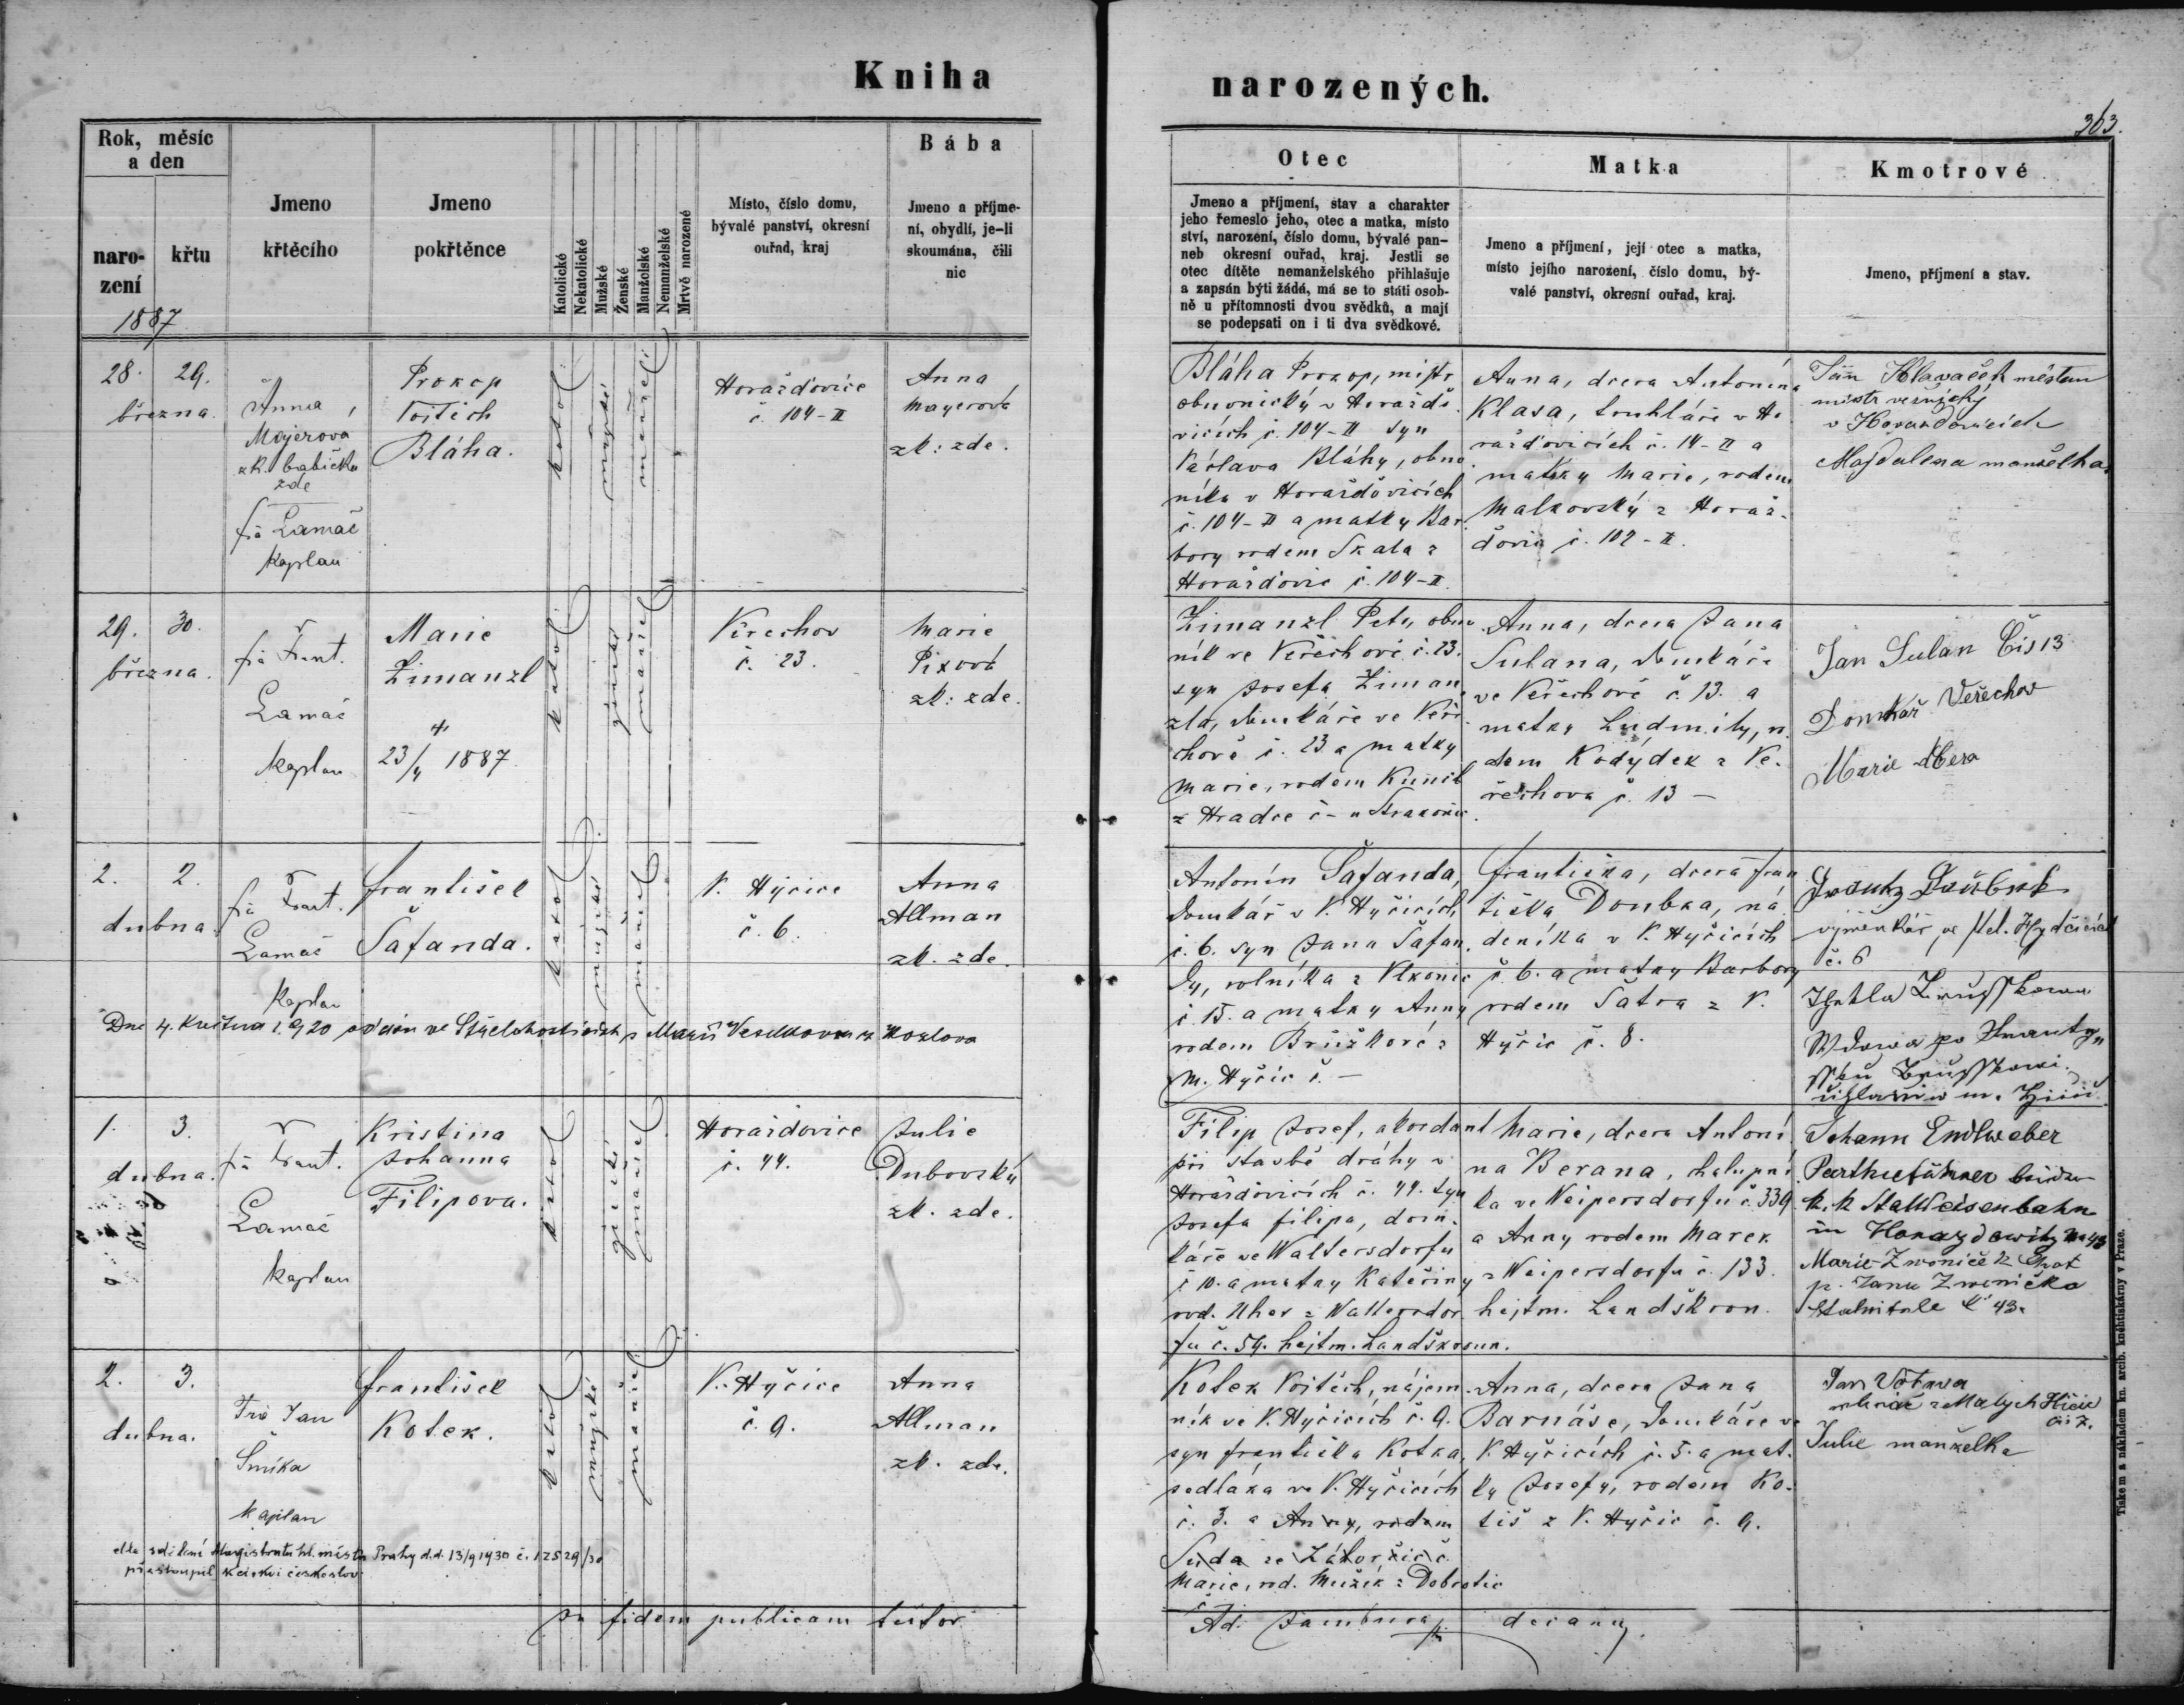 Kniha
narozených.
363.
Rok, měsíc
a den
naro-
zení
křtu
1887
Jmeno
křtěcího
Jmeno
pokřtěnce
Katolické
Nekatolické
Mužské
Ženské
Manželské
Nemanželské
Mrtvě narozené
Místo, číslo domu,
bývalé panství, okresní
ouřad, kraj
Bába
Jmeno a příjme-
ní, obydlí, je-li
skoumána, čili
nic
Otec
Jmeno a příjmení, stav a charakter
jeho řemeslo jeho, otec a matka, místo
ství, narození, číslo domu, bývalé pan-
neb okresní ouřad, kraj. Jestli se
otec dítěte nemanželského přihlašuje
a zapsán býti žádá, má se to státi osob-
ně u přítomnosti dvou svědků, a mají
se podepsati on i ti dva svědkové.
Matka
Jmeno a příjmení, její otec a matka,
místo jejího narození, číslo domu, bý-
valé panství, okresní ouřad, kraj.
Kmotrové
Jmeno, příjmení a stav.
28. 29.
března.
Anna
Majerova
zk. babička
zde
Lamač
Kaplan
Prokop
Vojtěch
Bláha.
katol
mužské
manžel
Horažďovice
č. 104-II
Anna
Mayerová
zk: zde.
Bláha Prokop, mistr
obuvnický v Horažďo
vicích č. 104-II syn
Václava Bláhy, obuv
níka v Horažďovicích
č. 104-II a matky Bar
bory rodem Skala z
Horažďovic č. 104-II
Anna, dcera Antonína
Klasa, truhláře v Ho
ražďovicích č. 14-II a
matky Marie, rodem
Malkovský z Horaž-
ďovic č. 102-II.
Hlavaček měštan
mistr
v Horažďovicích
Majdalena manželka
29. 30.
března.
Frant.
Lamač
kaplan
Marie
Zimanzl
23/4 1887
katol
ženské
manžel
Veřechov
č. 23.
Marie
Pixová
zk: zde.
Zimanzl Petr,
ník ve Veřechově č. 23.
syn Josefa Ziman
zla, domkáře ve Veře
chově č. 23 a matky
Marie, rodem
z Hradce č - u Strakonic
Anna, dcera Jana
Sulana, domkáře
ve Veřechově č. 13. a
matky Ludmily, ro
dem Kodýdek z Ve-
řechova č. 13 -
Jan Sulan Čis 13
Domkář Veřechov
Marie
2. 2.
dubna.
Frant.
Lamač
Kaplan
František
Šafanda.
katol
mužské
manžel
V. Hyčice
č. 6.
Anna
Allman
zk. zde.
Antonín Šafanda,
domkář v V. Hyčicích
č. 6. syn Jana Šafan
dy, rolníka z Vlkonic
č. 15. a matky Anny
rodem Brůžkové z
M. Hyčic č. -
Františka, dcera Fran
tiška Doubka, ná
deníka v V. Hyčicích
č. 6. a matky Barbory
rodem Šatra z V.
Hyčic č. 8.
výměnkář ve Vel. Hydčicích
č. 6
Dne 4. Května 1920 oddán ve Střelohosticích s Marií Veselkovou z Kozlova
1. 3.
dubna.
Frant.
Lamač
kaplan
Kristina
Johanna
Filipova.
katol
ženské
manžel
Horažďovice
č. 44.
Julie
Dubovská
zk. zde.
Filip Josef, akordant
při stavbě dráhy v
Horažďovicích č. 44. syn
Josefa Filipa, dom-
káře ve Waltersdorfu
č 10. a matky Kateřiny
rod. Uher z Waltersdor
fu č. 54. hejtm. Landškroun.
Marie, dcera Antoní
na Berana, chalupní
ka ve Weipersdorfu č. 339
a Anny rodem Marek
z Weipersdorfu č. 133.
hejtm. Landškron.
Johann Endlweber
Parthieführer
k. k Staatseisenbahn
in Horazdowitz No 43
Marie
p. Jana Zwonička
43.
2. 3.
dubna.
Jan
Šmíka
kaplan
František
Kotek.
katol
mužské
manžel
V. Hyčice
č. 9.
Anna
Allman
zk. zde.
Kotek Vojtěch, nájem
ník ve V. Hyčicích č. 9.
syn Františka Kotka,
sedláka ve V. Hyčicích
č. 3. a Anny, rodem
Suda ze Zábořic č.
Marie, rod. Mužík z Dobrotic
Anna, dcera Jana
Barnáše, domkáře ve
V. Hyčicích č. 5. a mat-
ky Josefy, rodem Ko-
tiš z V. Hyčic č. 9.
Jan Votawa
z Malych Hičic
čis 7.
Julie manželka
dle sdělení Magistrátu hl. města Prahy d.d. 13/9 1930 č. 12529/30
přestoupil k církvi českoslov.
In fidem publicam testor
Ad. Jambura
decanus
Tiskem a nákladem kn. arcib. kněhtiskárny v Praze.